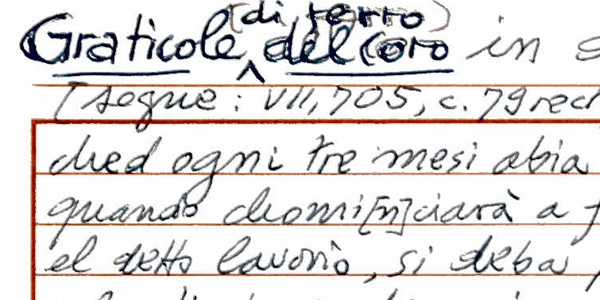 (di ferro)
Graticole del coro in
[segue: VII, 705, c. 79 rec
ched ogni tre mesi abia
quando chomi[n]ciarà a f
el detto lavorio, si deba